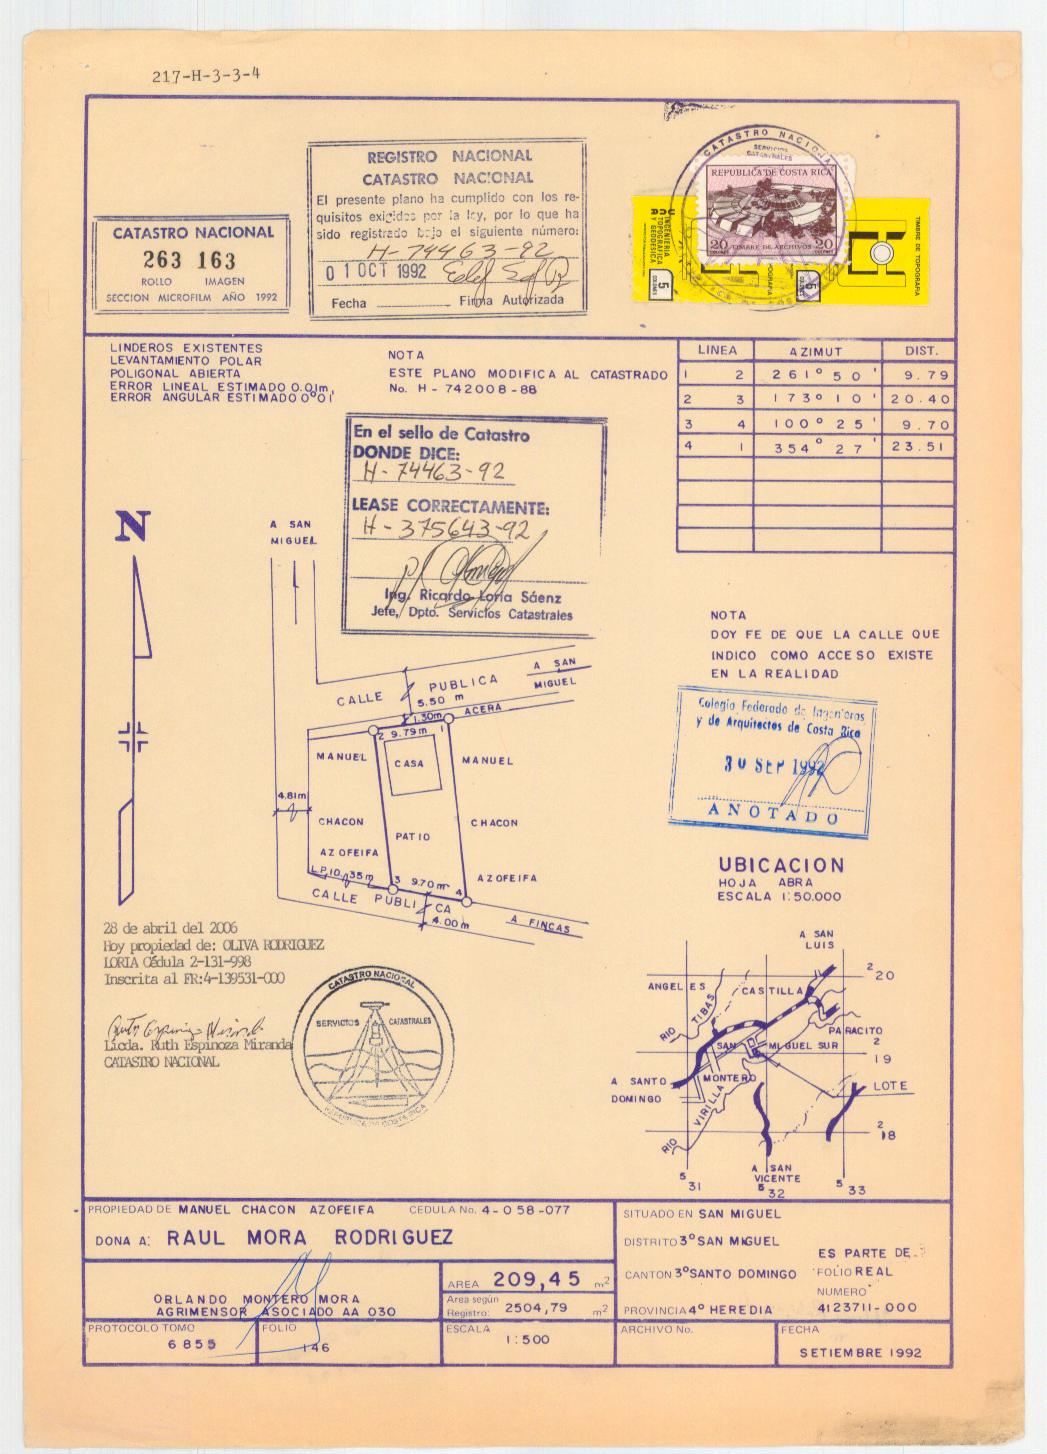 217-H-3-3-4
REGISTRO NACIONAL
CATASTRO NACIONAL
El presente plano ha cumplido con los re-
quisitos exigidos por la ley, por lo que ha
sido registrado bajo el siguiente número:
H-74463-92
0 1 OCT 1992
Fecha Firma Autorizada
CATASTRO NACIONAL
263 163
ROLLO IMAGEN
SECCION MICROFILM AÑO 1992
CATASTRO NACIONAL
SERVICIOS
CATASTRALES
REPUBLICA DE COSTA RICA
20 TIMBRE DE ARCHIVOS 20
COLONES COLONES
INGENIERIA
TOPOGRAFICA
Y GEODESICA
5
COLONES
5
TIMBRE DE TOPOGRAFIA
LINDEROS EXISTENTES
LEVANTAMIENTO POLAR
POLIGONAL ABIERTA
ERROR LINEAL ESTIMADO 0.01m,
ERROR ANGULAR ESTIMADO 0°01'
NOTA
ESTE PLANO MODIFICA AL CATASTRADO
No. H - 742008-88
LINEA AZIMUT DIST.
1 2 261° 50' 9.79
2 3 173° 10' 20.40
3 4 100° 25' 9.70
4 1 354° 27' 23.51
En el sello de Catastro
DONDE DICE:
H-74463-92
LEASE CORRECTAMENTE:
H-375643-92
Ing. Ricardo Loría Sáenz
Jefe, Dpto. Servicios Catastrales
N
A SAN
MIGUEL
NOTA
DOY FE DE QUE LA CALLE QUE
INDICO COMO ACCESO EXISTE
EN LA REALIDAD
Colegio Federado de Ingenieros
y de Arquitectos de Costa Rica
30 SEP 1992
ANOTADO
CALLE PUBLICA
A SAN
MIGUEL
5.50 m
1.30m ACERA
2 9.79m 1
MANUEL CASA MANUEL
4.81m
CHACON PATIO CHACON
AZOFEIFA AZOFEIFA
L.P.10.35m 3 9.70m 4
CALLE PUBLICA
4.00m
A FINCAS
UBICACION
HOJA ABRA
ESCALA 1:50.000
28 de abril del 2006
Hoy propiedad de: OLIVA RODRIGUEZ
LORIA Cédula 2-131-998
Inscrita al FR:4-139531-000
Licda. Ruth Espinoza Miranda
CATASTRO NACIONAL
CATASTRO NACIONAL
SERVICIOS CATASTRALES
REPUBLICA DE COSTA RICA
A SAN
LUIS
2 20
ANGELES CASTILLA
RIO TIBAS
PARACITO
SAN MIGUEL SUR
2 19
A SANTO
DOMINGO
MONTERO
LOTE
RIO VIRILLA
2 18
A SAN
VICENTE
5 31
5 32
5 33
PROPIEDAD DE MANUEL CHACON AZOFEIFA CEDULA No. 4-058-077
DONA A: RAUL MORA RODRIGUEZ
ORLANDO MONTERO MORA
AGRIMENSOR ASOCIADO AA 030
AREA 209,45 m2
Area según
Registro: 2504,79 m2
PROTOCOLO TOMO
6855
FOLIO
146
ESCALA
1:500
SITUADO EN SAN MIGUEL
DISTRITO 3º SAN MIGUEL
CANTON 3º SANTO DOMINGO
PROVINCIA 4º HEREDIA
ES PARTE DE:
FOLIO REAL
NUMERO
4123711-000
ARCHIVO No.
FECHA
SETIEMBRE 1992